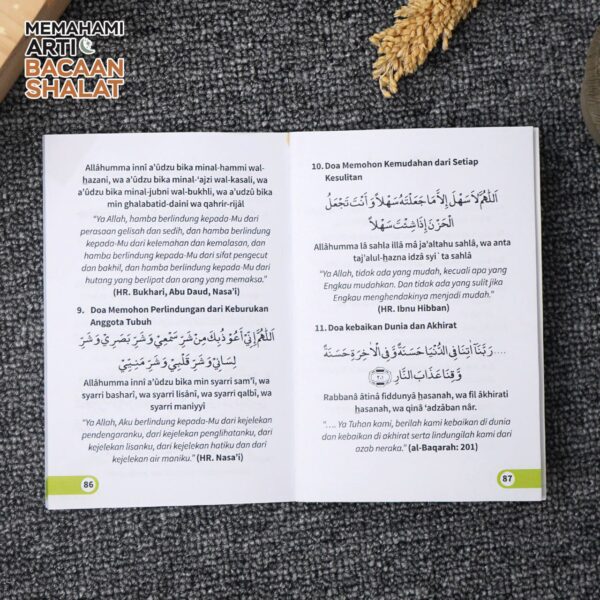 MEMAHAMI
ARTI
BACAAN
SHALAT
Allâhumma innî a'ûdzu bika minal-hammi wal-
ḥazani, wa a'ûdzu bika minal-'ajzi wal-kasali, wa
a'ûdzu bika minal-jubni wal-bukhli, wa a'udzû bika
min ghalabatid-daini wa qahrir-rijâl
"Ya Allah, hamba berlindung kepada-Mu dari
perasaan gelisah dan sedih, dan hamba berlindung
kepada-Mu dari kelemahan dan kemalasan, dan
hamba berlindung kepada-Mu dari sifat pengecut
dan bakhil, dan hamba berlindung kepada-Mu dari
hutang yang berlipat dan orang yang memaksa."
(HR. Bukhari, Abu Daud, Nasa'i)
9. Doa Memohon Perlindungan dari Keburukan
Anggota Tubuh
اَللّٰهُمَّ إِنِّيْ أَعُوْذُ بِكَ مِنْ شَرِّ سَمْعِيْ وَشَرِّ بَصَرِيْ وَشَرِّ
لِسَانِيْ وَشَرِّ قَلْبِيْ وَشَرِّ مَنِيِّيْ
Allâhumma innî a'ûdzu bika min syarri sam'î, wa
syarri basharî, wa syarri lisânî, wa syarri qalbî, wa
syarri maniyyî
"Ya Allah, Aku berlindung kepada-Mu dari kejelekan
pendengaranku, dari kejelekan penglihatanku, dari
kejelekan lisanku, dari kejelekan hatiku dan dari
kejelekan air maniku." (HR. Nasa'i)
86
10. Doa Memohon Kemudahan dari Setiap
Kesulitan
اَللّٰهُمَّ لَا سَهْلَ إِلَّا مَا جَعَلْتَهُ سَهْلًا وَأَنْتَ تَجْعَلُ
الْحَزْنَ إِذَا شِئْتَ سَهْلًا
Allâhumma lâ sahla illâ mâ ja'altahu sahlâ, wa anta
taj'alul-ḥazna idzâ syi`ta sahlâ
"Ya Allah, tidak ada yang mudah, kecuali apa yang
Engkau mudahkan. Dan tidak ada yang sulit jika
Engkau menghendakinya menjadi mudah."
(HR. Ibnu Hibban)
11. Doa kebaikan Dunia dan Akhirat
.... رَبَّنَآ اٰتِنَا فِى الدُّنْيَا حَسَنَةً وَّفِى الْاٰخِرَةِ حَسَنَةً
وَّقِنَا عَذَابَ النَّارِ ٢٠١
Rabbanâ âtinâ fiddunyâ ḥasanah, wa fil âkhirati
ḥasanah, wa qinâ 'adzâban nâr.
".... Ya Tuhan kami, berilah kami kebaikan di dunia
dan kebaikan di akhirat serta lindungilah kami dari
azab neraka." (al-Baqarah: 201)
87